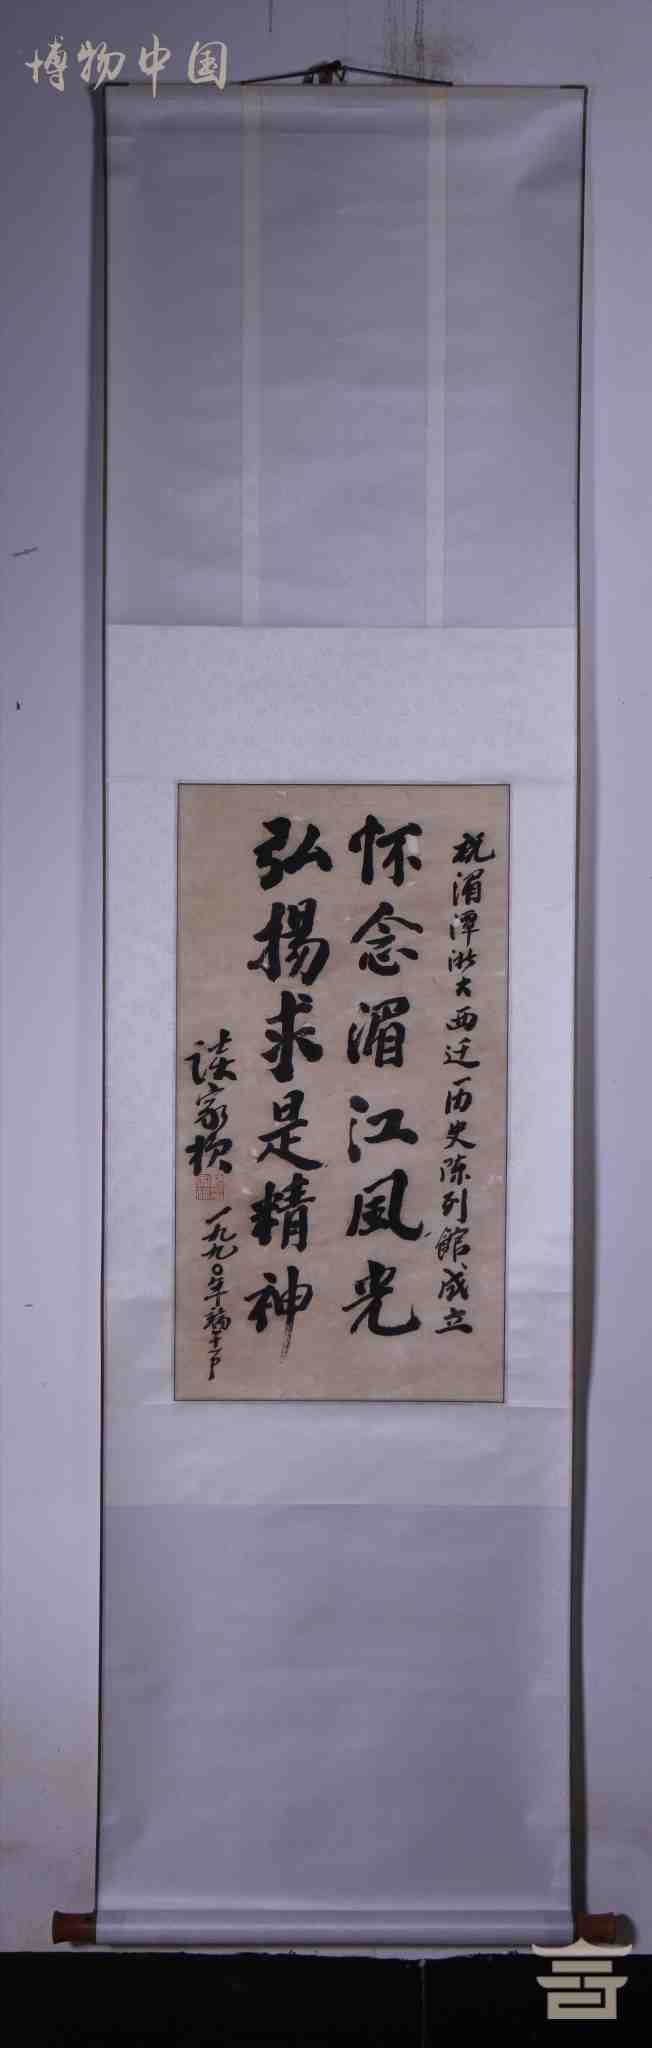 博物中国
祝湄潭浙大西迁历史陈列館成立
怀念湄江风光
弘揚求是精神
谈家桢
一九九〇年端午节